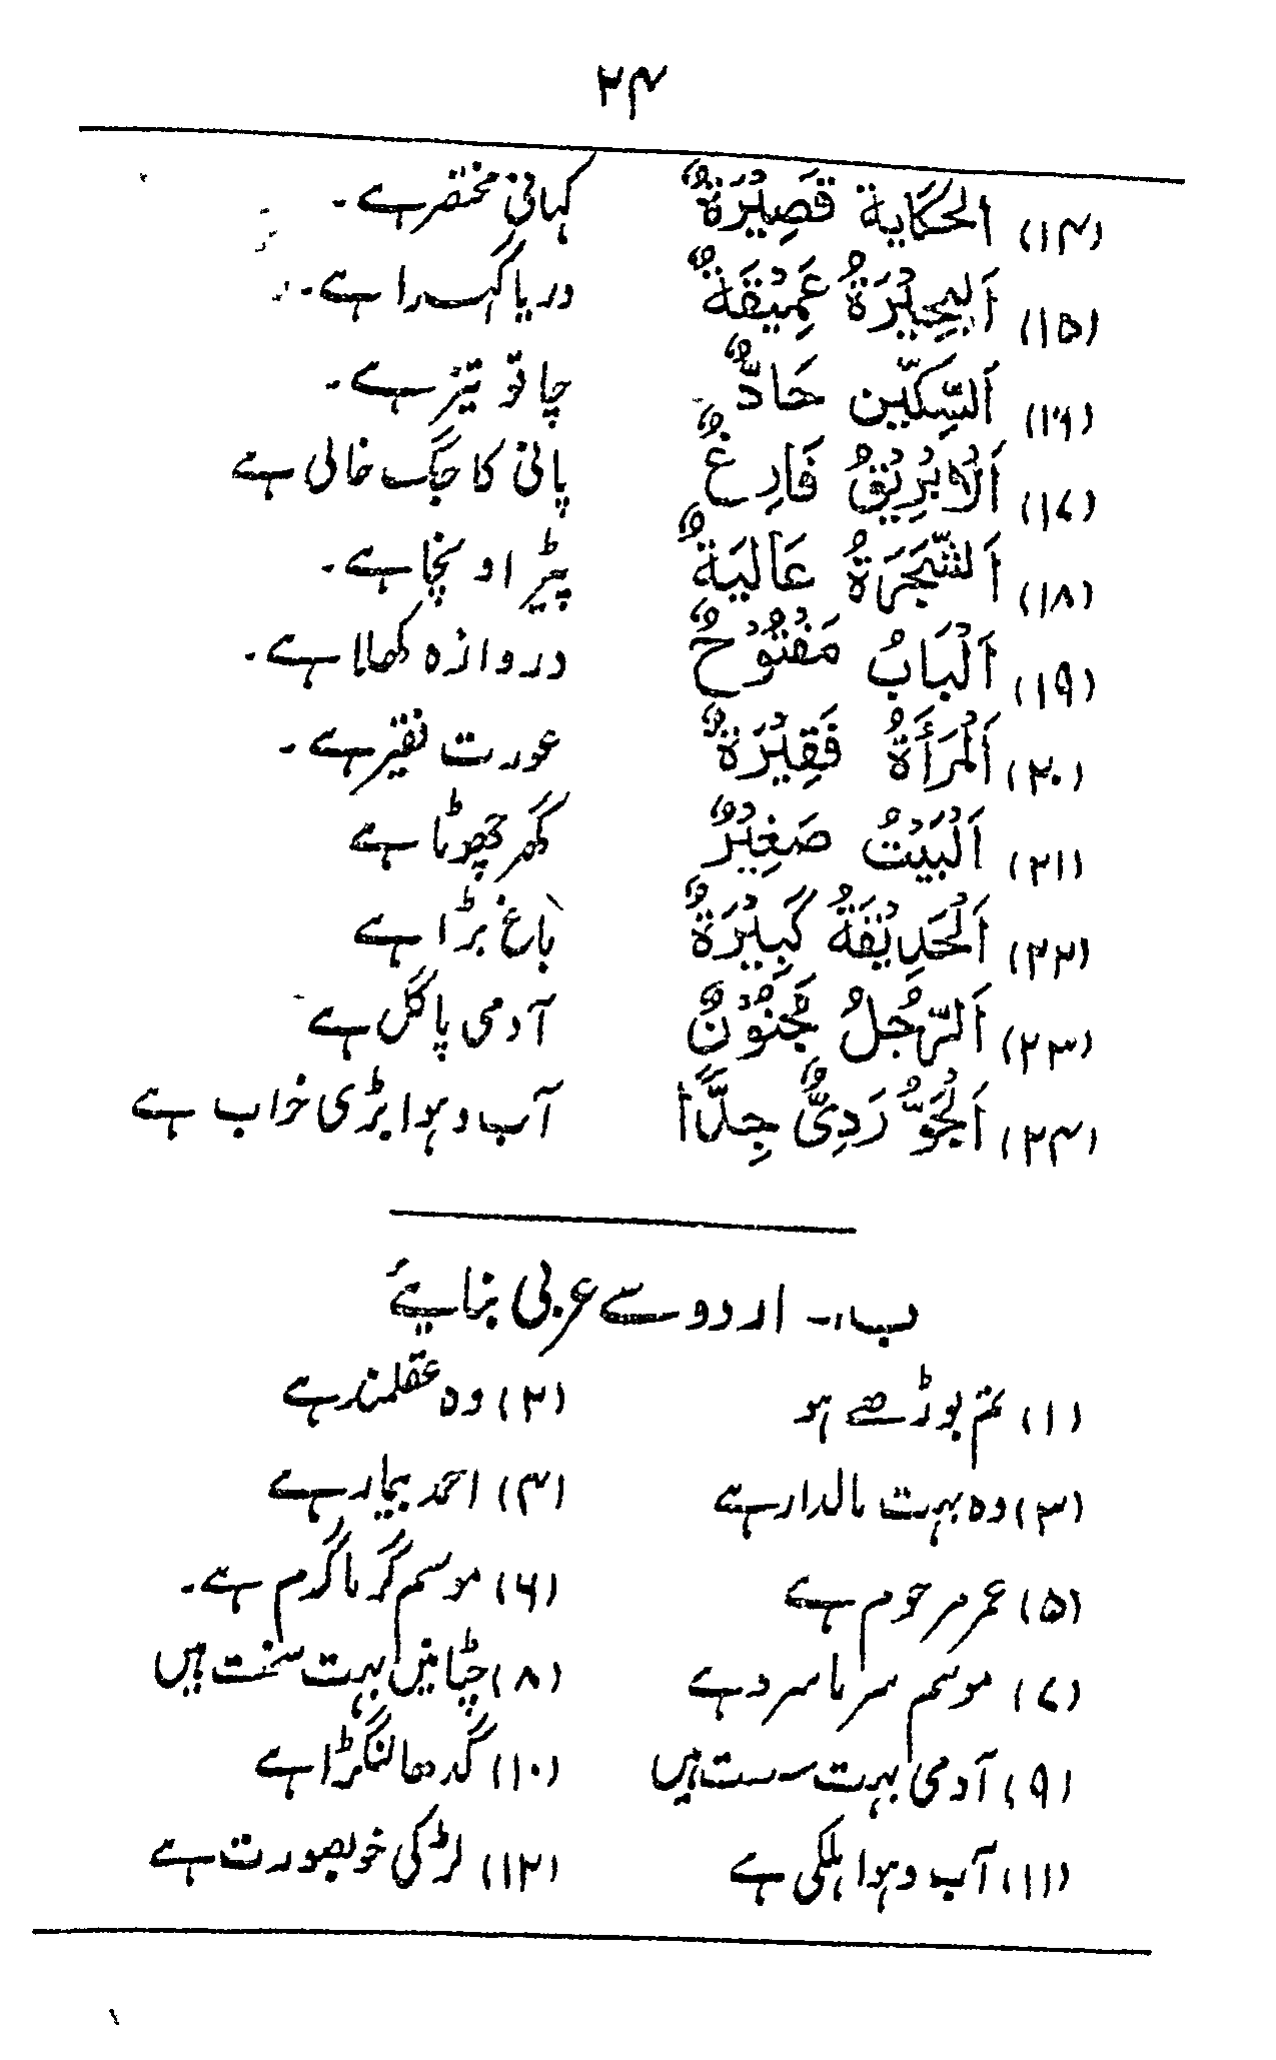 ۲۴
(۱۴) اَلحِکَایة قَصِیْرَةٌ کہانی مختصر ہے۔
(۱۵) اَلبُحَیْرَةُ عَمِیْقَةٌ دریا گہرا ہے۔
(۱۶) اَلسِّکِّین حَادٌّ چاقو تیز ہے۔
(۱۷) اَلْاِبْرِیْقُ فَارِغٌ پانی کا جگ خالی ہے
(۱۸) اَلشَّجَرَةُ عَالِیَةٌ پیڑ اونچا ہے۔
(۱۹) اَلْبَابُ مَفْتُوْحٌ دروازہ کھلا ہے۔
(۲۰) اَلْمَرْأَةُ فَقِیْرَةٌ عورت فقیر ہے۔
(۲۱) اَلْبَیْتُ صَغِیْرٌ گھر چھوٹا ہے
(۲۲) اَلْحَدِیْقَةُ کَبِیْرَةٌ باغ بڑا ہے
(۲۳) اَلرَّجُلُ مَجْنُوْنٌ آدمی پاگل ہے
(۲۴) اَلْجَوُّ رَدِیٌّ جِدًّا آب و ہوا بڑی خراب ہے
ب:۔ اردو سے عربی بنایئے
(۱) تم بوڑھے ہو (۲) وہ عقلمند ہے
(۳) وہ بہت مالدار ہے (۴) احمد بیمار ہے
(۵) عمر مرحوم ہے (۶) موسم گرما گرم ہے۔
(۷) موسم سرما سرد ہے (۸) چٹانیں بہت سخت ہیں
(۹) آدمی بہت سست ہیں (۱۰) گدھا لنگڑا ہے
(۱۱) آب و ہوا ہلکی ہے (۱۲) لڑکی خوبصورت ہے